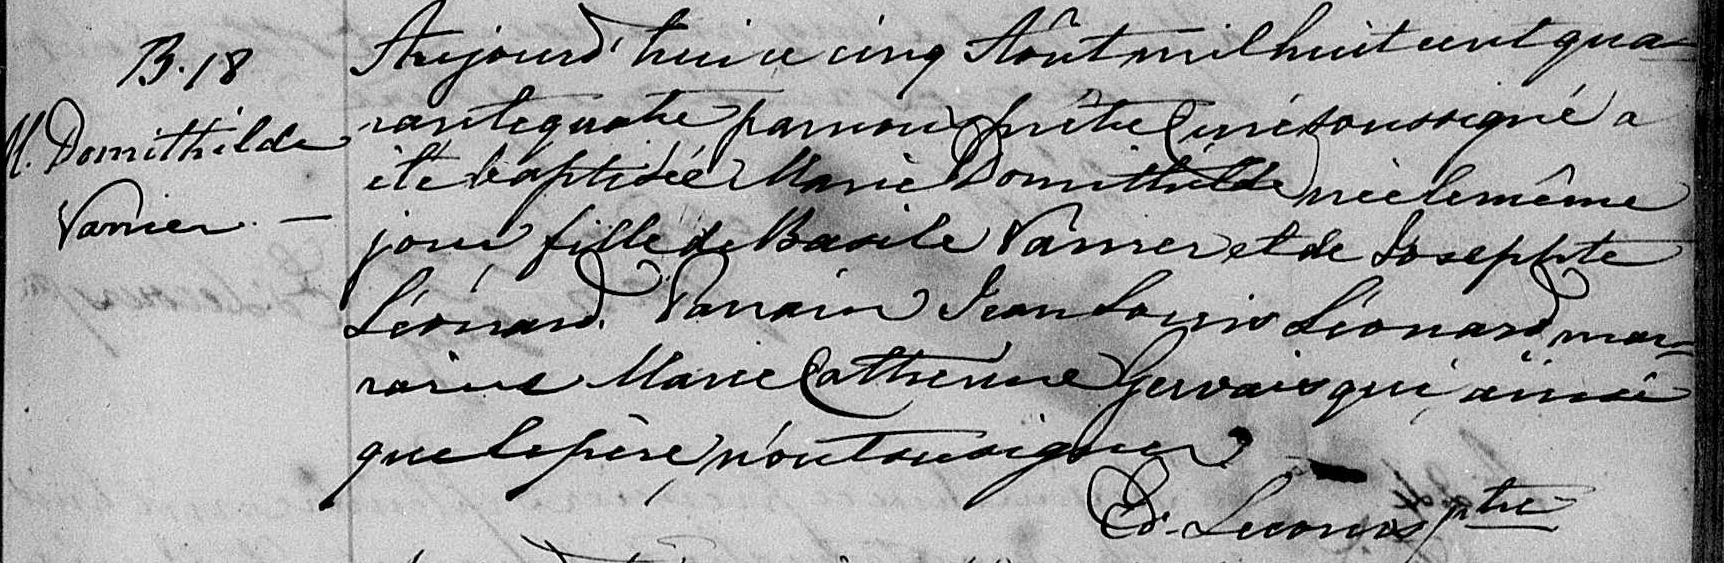 B.18
M. Domithilde
Vanier. —
Aujourd'hui ce cinq Août mil huit cent qua-
rante quatre par nous prêtre Curé soussigné a
été baptisée Marie Domithilde née le même
jour fille de Basile Vanier et de Josephte
Léonard. Parrain Jean Louis Léonard mar-
raine Marie Catherine Gervais qui, ainsi
que le père, n'ont su signer.
Ed. Lecours ptre